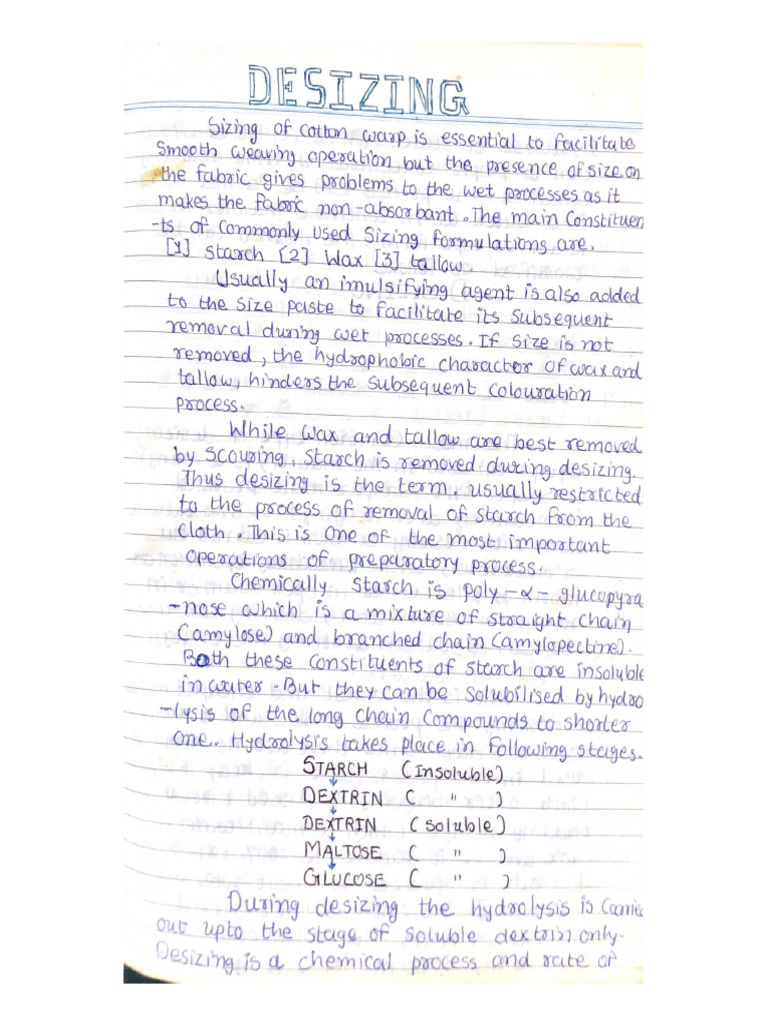 DESIZING
Sizing of cotton warp is essential to facilitate
smooth weaving operation but the presence of size on
the fabric gives problems to the wet processes as it
makes the fabric non-absorbant. The main Constituen
-ts of commonly used sizing formulations are.
[1] starch [2] Wax [3] tallow.
Usually an imulsifying agent is also added
to the size paste to facilitate its subsequent
removal during wet processes. If size is not
removed, the hydrophobic character of wax and
tallow, hinders the subsequent colouration
process.
While wax and tallow are best removed
by scouring, starch is removed during desizing.
Thus desizing is the term, usually restricted
to the process of removal of starch from the
cloth. This is one of the most important
operations of preparatory process.
Chemically starch is poly-α-glucopyra
-nose which is a mixture of straight chain
(amylose) and branched chain (amylopectine).
Both these constituents of starch are insoluble
in water. But they can be solubilised by hydro
-lysis of the long chain compounds to shorter
one. Hydrolysis takes place in following stages.
STARCH (Insoluble)
↓
DEXTRIN ( " )
↓
DEXTRIN (soluble)
↓
MALTOSE ( " )
↓
GLUCOSE ( " )
During desizing the hydrolysis is Carrie
out upto the stage of soluble dextrin only.
Desizing is a chemical process and rate of